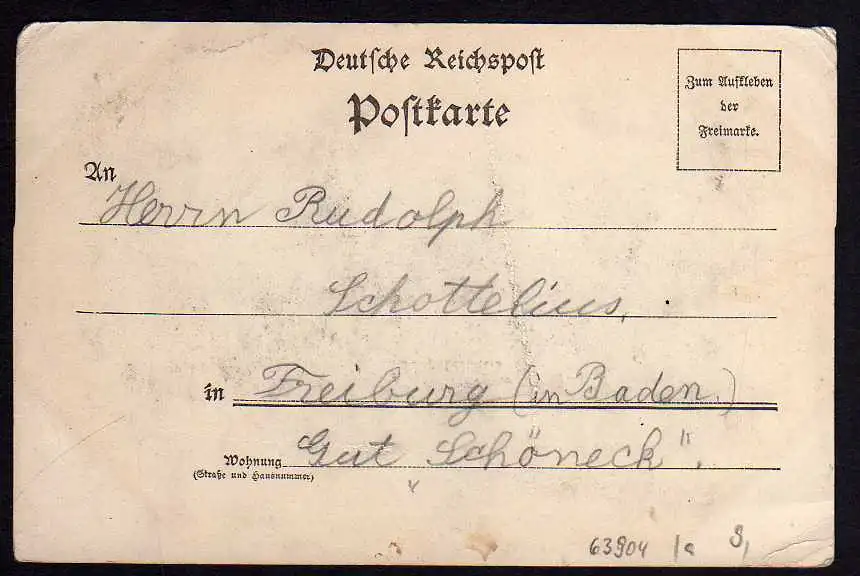 Deutsche Reichspost
Postkarte
Zum Aufkleben
der
Freimarke.
An
Herrn Rudolph
Schottelius,
in Freiburg (in Baden.)
Wohnung Gut Schöneck".
(Straße und Hausnummer)
63904 1a 9,